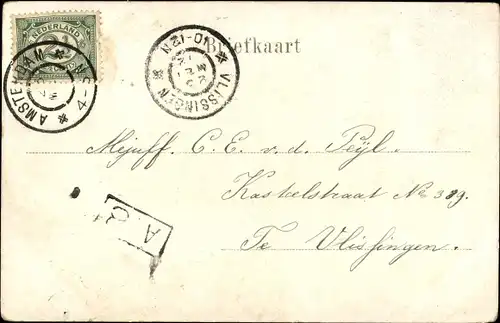 NEDERLAND
AMSTERDAM
3-4N
VLISSINGEN
10-12N
Briefkaart
Mejuff. C. E. v. d. Peyl.
Kastelstraat No 319.
Te Vlissingen
A